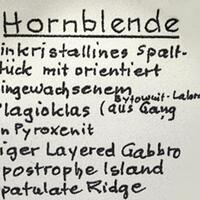 Hornblende
inkristallines Spalt-
tück mit orientiert
ingewachsenem
Bytownit-Labra
lagioklas (aus Gang
n Pyroxenit
iger Layered Gabbro
postrophe Island
patulate Ridge